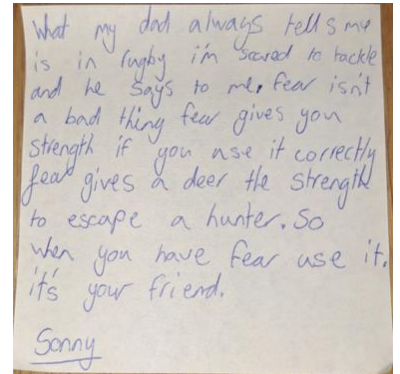 What my dad always tells me
is in rugby i'm scared to tackle
and he says to me, fear isn't
a bad thing fear gives you
strength if you use it correctly
fear gives a deer the strength
to escape a hunter. So
when you have fear use it.
it's your friend.
Sonny